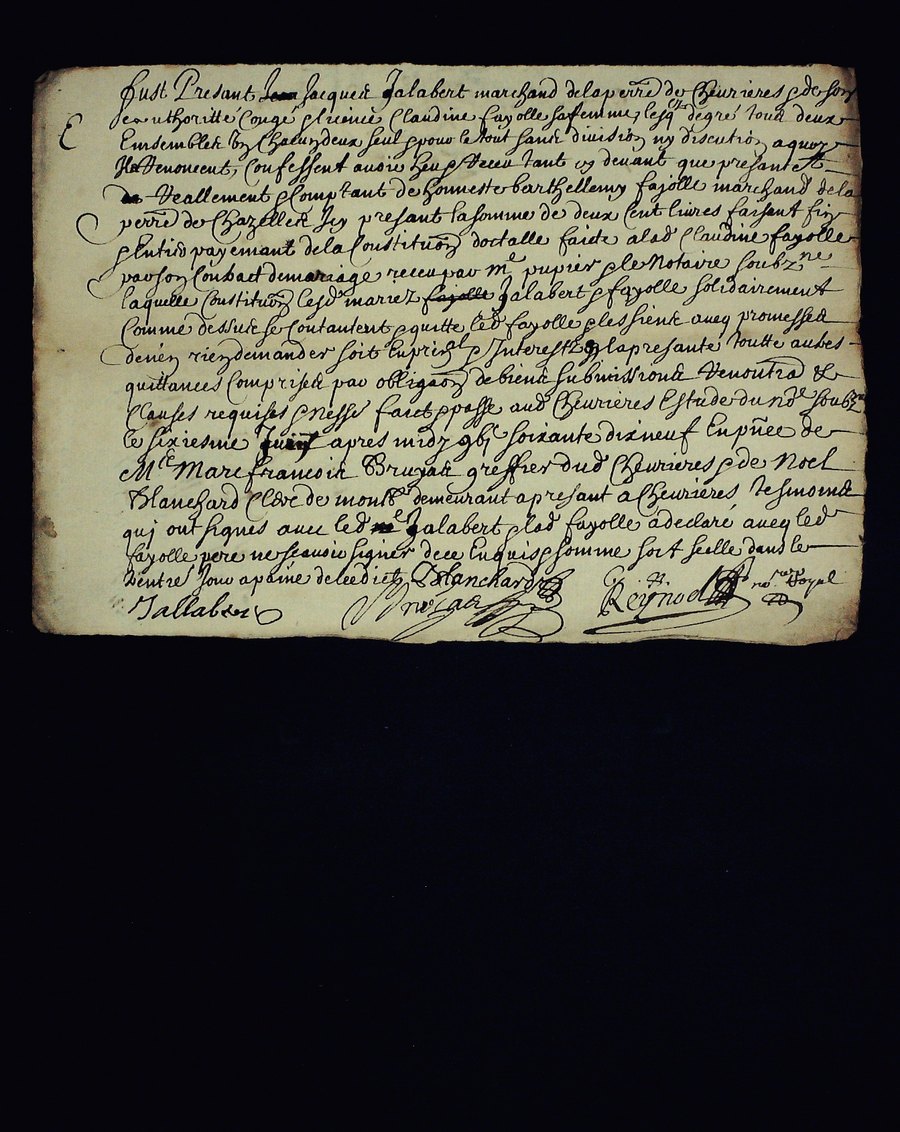 fust Presant Jean Jacques Jalabert marchand de la perre de Cheurieres & de son
authoritte Congé & licence Claudine fayolle sa femme, lesq degré tous deux
Ensembles & Chacun deux seul & pour le tout sans division ny discution a quoy
Renoncent, Confessent avoir heu & receu tant cy devant que presantemt
reallement & Comptant de honneste barthellemy fayolle marchand de la
perre de Chazelles Icy presant la somme de deux Cent livres faisant fin
& Entier payemant de la Constituon doctalle faicte a lad Claudine fayolle
par son Contract de mariage receu par me pupier & le Notaire soubzne
laquelle Constituon lesd mariez fayolle Jalabert & fayolle solidairement
Comme dessus se Contantent & quitte led fayolle & les siens avec promesses
den rien demander soit En prinl & Interestz la presante toutte autres
quittances Comprises par obligaon de biens submissions Renontiaons &
Clauses requises & Nesse faict & passe aud Cheurieres Estude du nore soubzne
le sixiesme Juin apres midy gbc soixante dix neuf En pñce de
Mre Marc francois Bruyas greffier dud Cheurieres & de Noel
Blanchard Clerc de demeurant a presant a Cheurieres tesmoins
qui ont signes avec led me Jalabert & lad fayolle a declaré avec led
fayolle pere ne scavoir signer de ce Enquis & somme soit scelle dans le
temps de led Blanchard
Jallabert Bruyas Reynod nore Royal